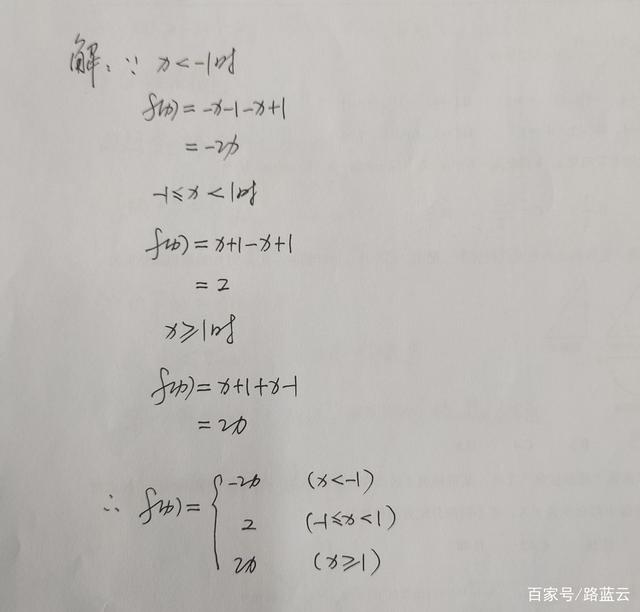 解：∵ x<-1时
f(x)=-x-1-x+1
=-2x
-1≤x<1时
f(x)=x+1-x+1
=2
x≥1时
f(x)=x+1+x-1
=2x
∴ f(x)={-2x (x<-1)
2 (-1≤x<1)
2x (x≥1)
百家号/路蓝云